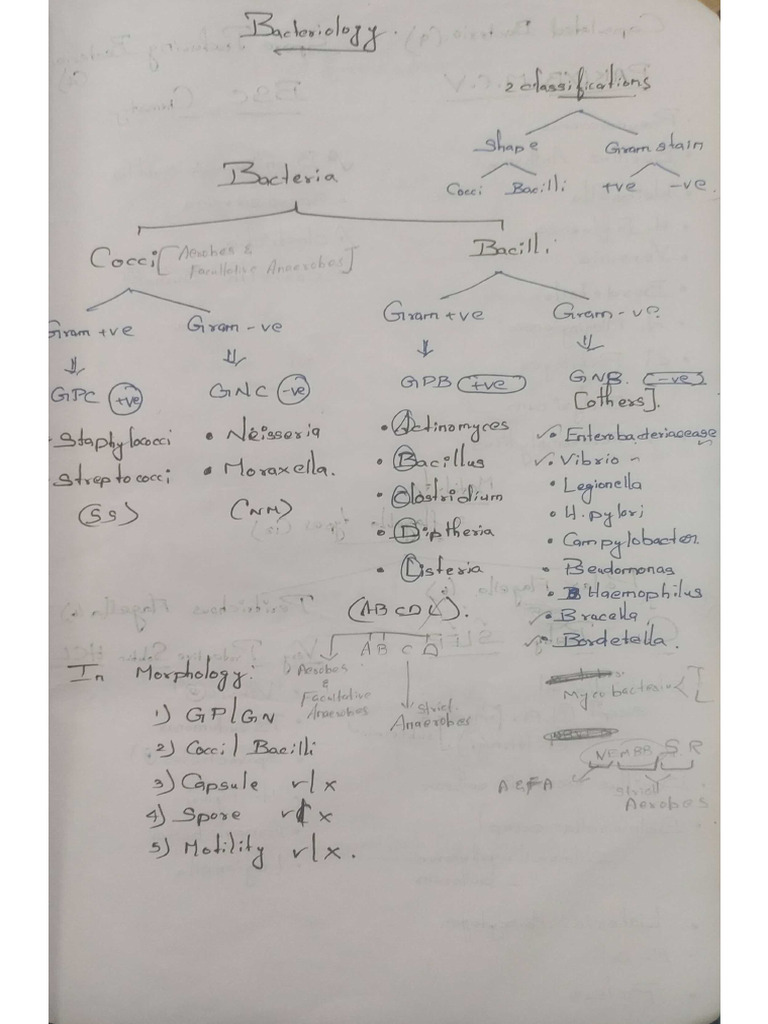 Bacteriology.
2 classifications
Shape Gram stain
Cocci Bacilli +ve -ve.
Bacteria
Cocci [Aerobes & Facultative Anaerobes]
Bacilli
Gram +ve Gram -ve Gram +ve Gram -ve
GPC +ve GNC -ve GPB +ve GNB. -ve
[others].
Staphylococci
Streptococci
(SS)
• Neisseria
• Moraxella.
(NM)
• Actinomyces
• Bacillus
• Clostridium
• Diptheria
• Listeria
(ABCDL).
A B C D
Aerobes & Facultative Anaerobes
Strict Anaerobes
✓ Enterobacteriacease
✓ Vibrio
• Legionella
• H. pylori
• Campylobacter.
• Beudomonas
• Haemophilus
✓ Bracella
✓ Bordetella.
Mycobacteria
NEMBR S R
A & FA
strict Aerobes
In Morphology:
1) GP/GN
2) Cocci/Bacilli
3) Capsule ✓/x
4) Spore ✓/x
5) Motility ✓/x.